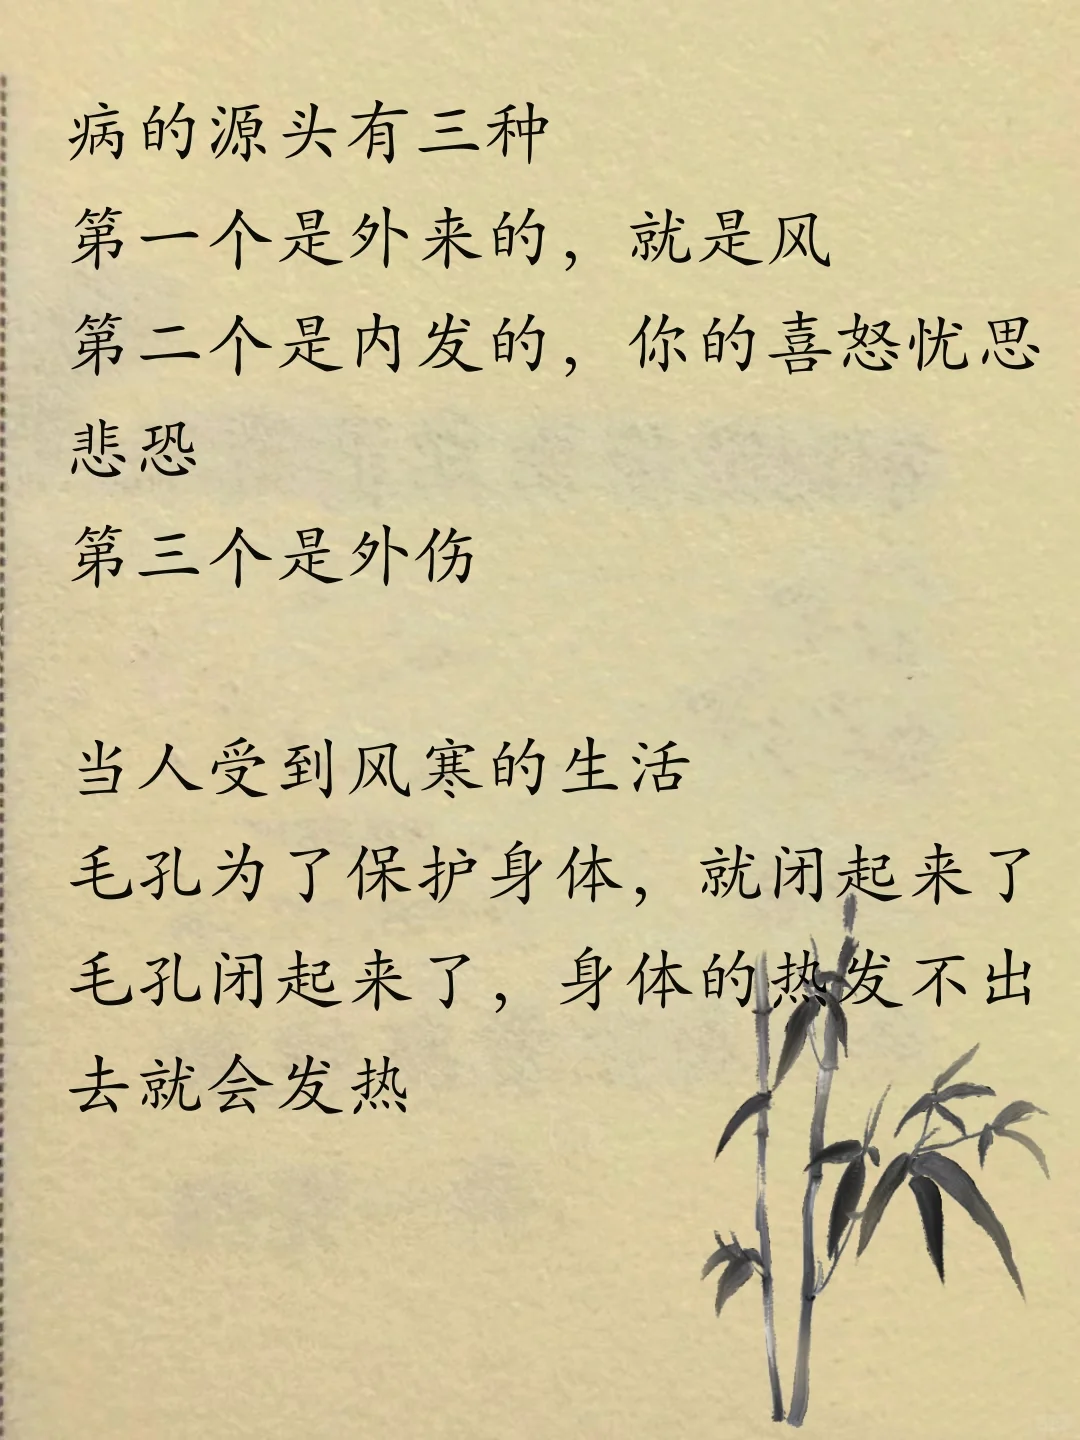 病的源头有三种
第一个是外来的，就是风
第二个是内发的，你的喜怒忧思
悲恐
第三个是外伤
当人受到风寒的生活
毛孔为了保护身体，就闭起来了
毛孔闭起来了，身体的热发不出
去就会发热